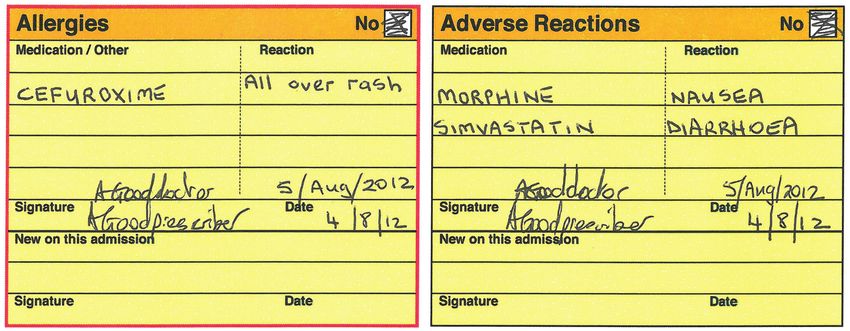 Allergies No
Medication / Other Reaction
CEFUROXIME All over rash
AGooddoctor 5/Aug/2012
Signature Date
AGoodprescriber 4/8/12
New on this admission
Signature Date
Adverse Reactions No
Medication Reaction
MORPHINE NAUSEA
SIMVASTATIN DIARRHOEA
AGooddoctor 5/Aug/2012
Signature Date
AGoodprescriber 4/8/12
New on this admission
Signature Date